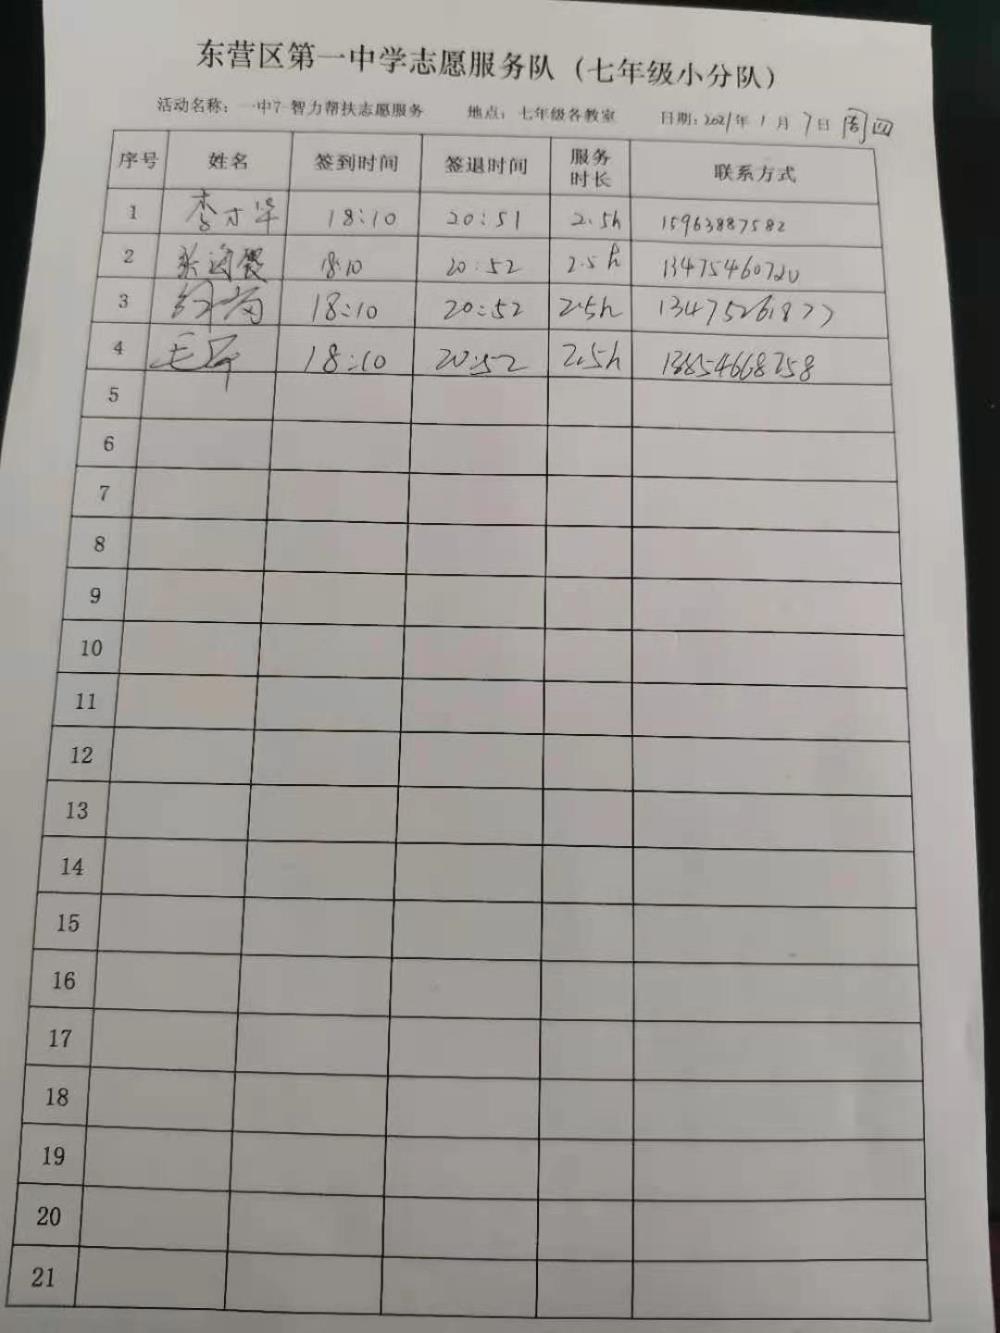 东营区第一中学志愿服务队（七年级小分队）
活动名称：一中7-智力帮扶志愿服务 地点：七年级各教室 日期：2021年1月7日 周四
序号 姓名 签到时间 签退时间 服务时长 联系方式
1 李才华 18:10 20:51 2.5h 15963887582
2 18:10 20:52 2.5h 13475460720
3 18:10 20:52 2.5h 13475261877
4 18:10 20:52 2.5h 13854668758
5
6
7
8
9
10
11
12
13
14
15
16
17
18
19
20
21